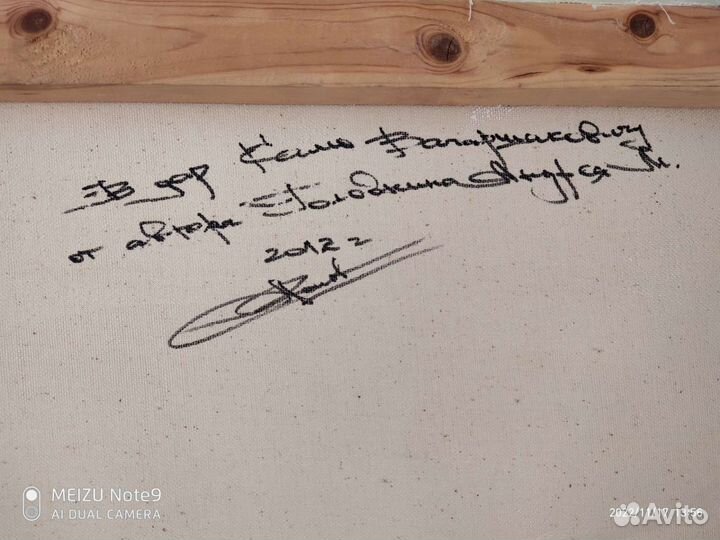 В дар Камо Вагаршаковичу
от автора Голобокина Андрея М.
2012 г
MEIZU Note9
AI DUAL CAMERA
2022/11/17 13:56
Avito